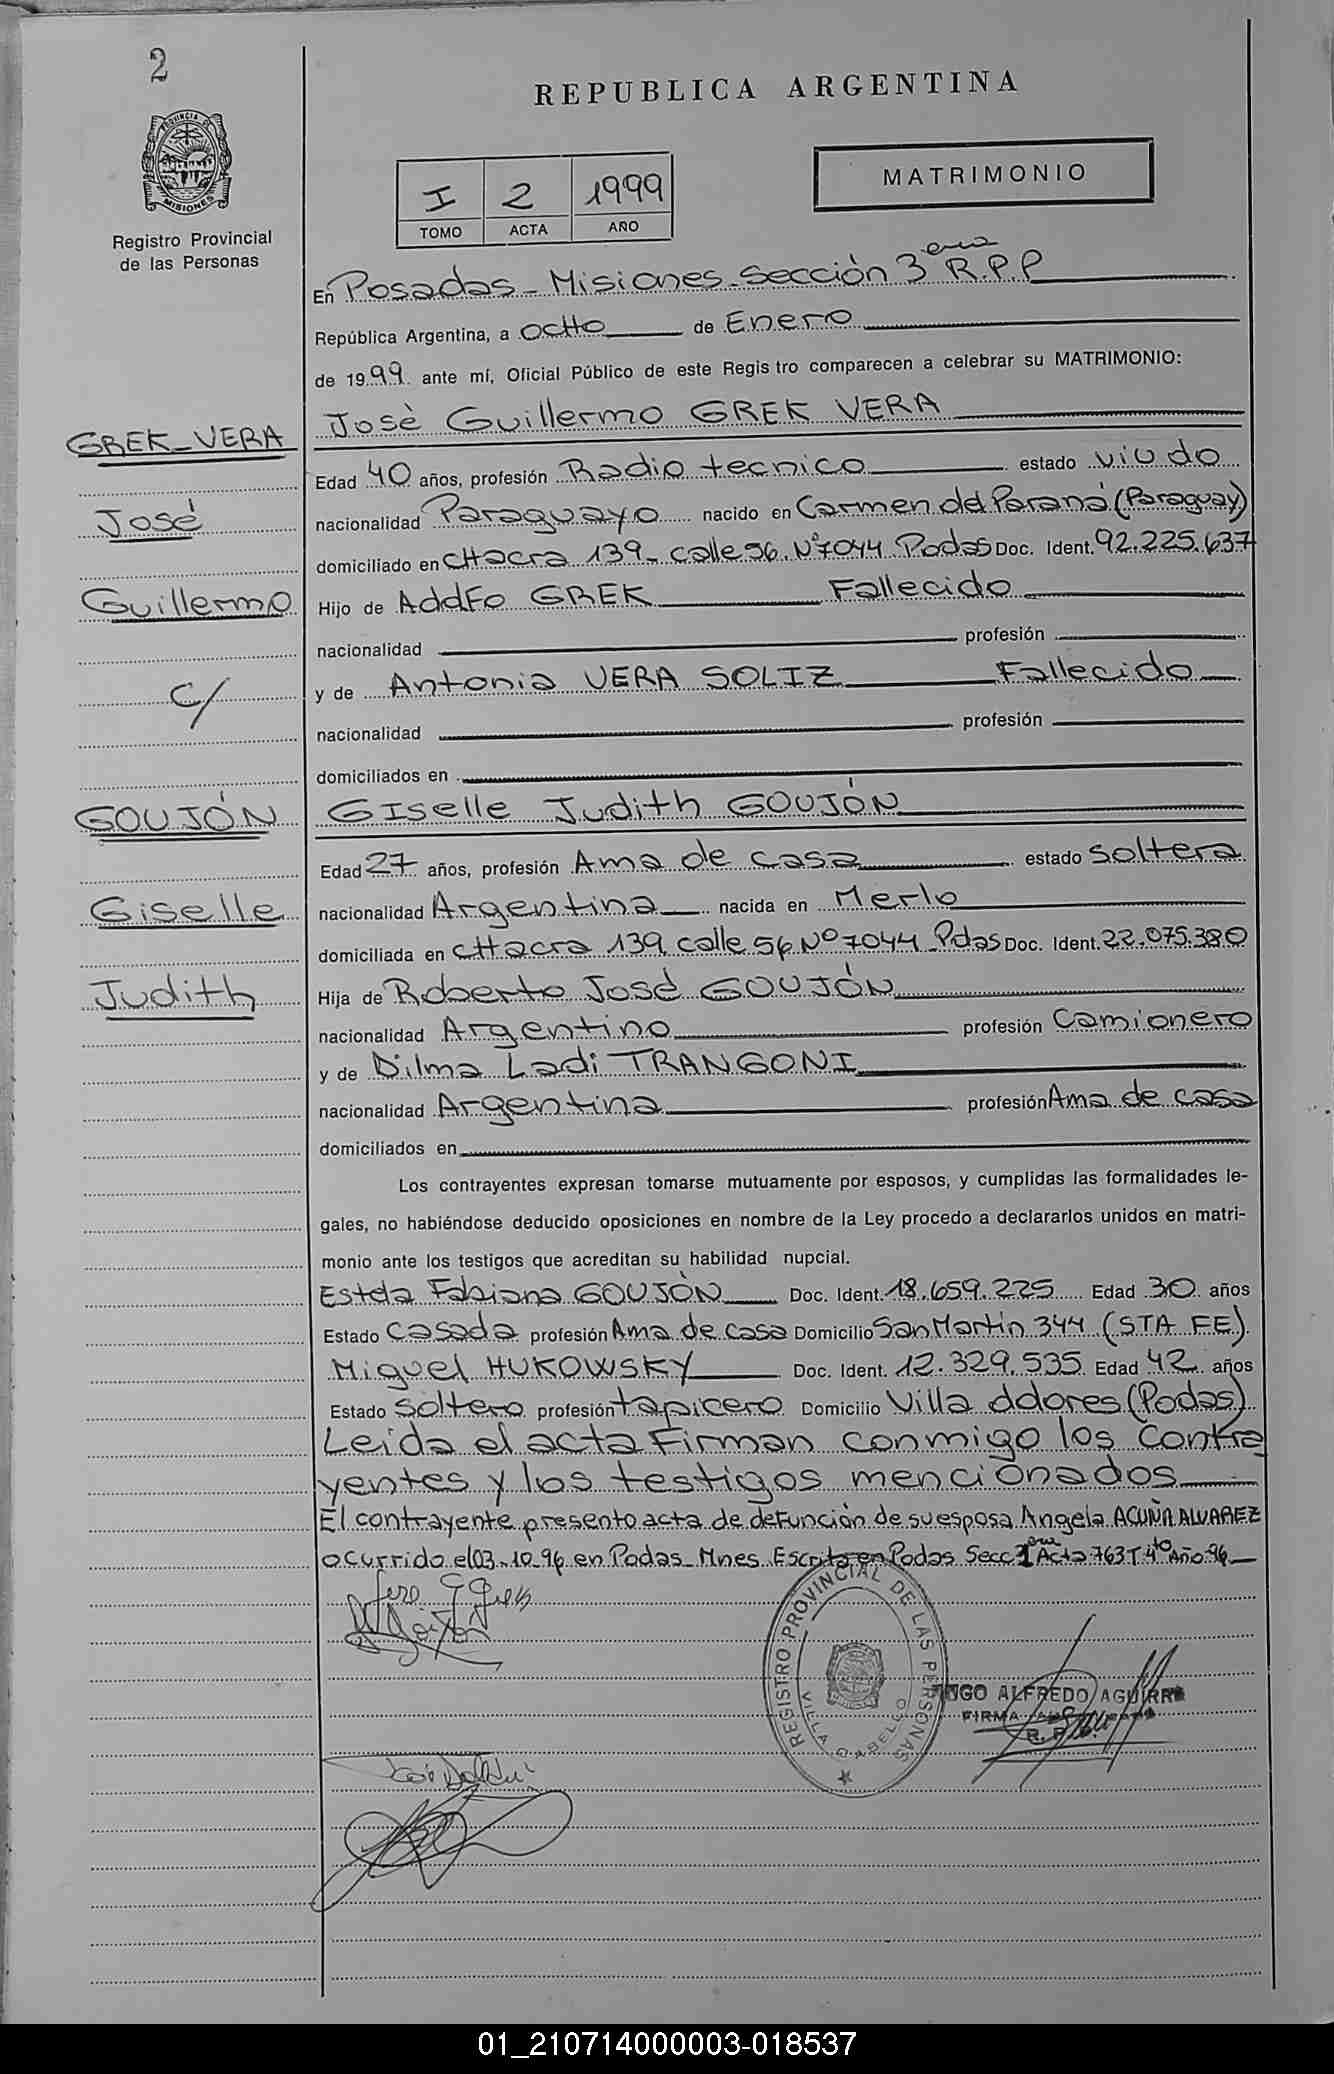 2
PROVINCIA DE
MISIONES
Registro Provincial
de las Personas
REPUBLICA ARGENTINA
I 2 1999
TOMO ACTA AÑO
MATRIMONIO
En Posadas - Misiones - Sección 3era R.P.P
República Argentina, a ocho de Enero
de 1999 ante mí, Oficial Público de este Regis tro comparecen a celebrar su MATRIMONIO:
José Guillermo GREK VERA
GREK-VERA
Edad 40 años, profesión Radio tecnico estado viudo
José
nacionalidad Paraguayo nacido en Carmen del Paraná (Paraguay)
domiciliado en cHacra 139 - calle 56. Nº7044 Podas Doc. Ident. 92.225.637
Guillermo
Hijo de Adolfo GREK Fallecido
nacionalidad profesión
c/
y de Antonia VERA SOLIZ Fallecido
nacionalidad profesión
domiciliados en
GOUJÓN
Giselle Judith GOUJÓN
Edad 27 años, profesión Ama de casa estado soltera
Giselle
nacionalidad Argentina nacida en Merlo
domiciliada en cHacra 139 calle 56 Nº 7044 Pdas Doc. Ident. 22.075.380
Judith
Hija de Roberto José GOUJÓN
nacionalidad Argentino profesión Camionero
y de Dilma Ladi TRANGONI
nacionalidad Argentina profesión Ama de casa
domiciliados en
Los contrayentes expresan tomarse mutuamente por esposos, y cumplidas las formalidades le-
gales, no habiéndose deducido oposiciones en nombre de la Ley procedo a declararlos unidos en matri-
monio ante los testigos que acreditan su habilidad nupcial.
Estela Fabiana GOUJÓN Doc. Ident. 18.659.225 Edad 30 años
Estado casada profesión Ama de casa Domicilio San Martín 344 (STA FE)
Miguel HUKOWSKY Doc. Ident. 12.329.535 Edad 42 años
Estado soltero profesión tapicero Domicilio Villa dolores (Podas)
Leida el acta Firman conmigo los Contra
yentes y los testigos mencionados
El contrayente presento acta de defunción de su esposa Angela ACUÑA ALVAREZ
ocurrido el 03.10.96 en Podas Mnes Escrita en Podas Secc 1era Acta 763 T 4to Año 96
REGISTRO PROVINCIAL DE LAS PERSONAS
VILLA CABELLO
HUGO ALFREDO AGUIRRE
FIRMA
01_210714000003-018537